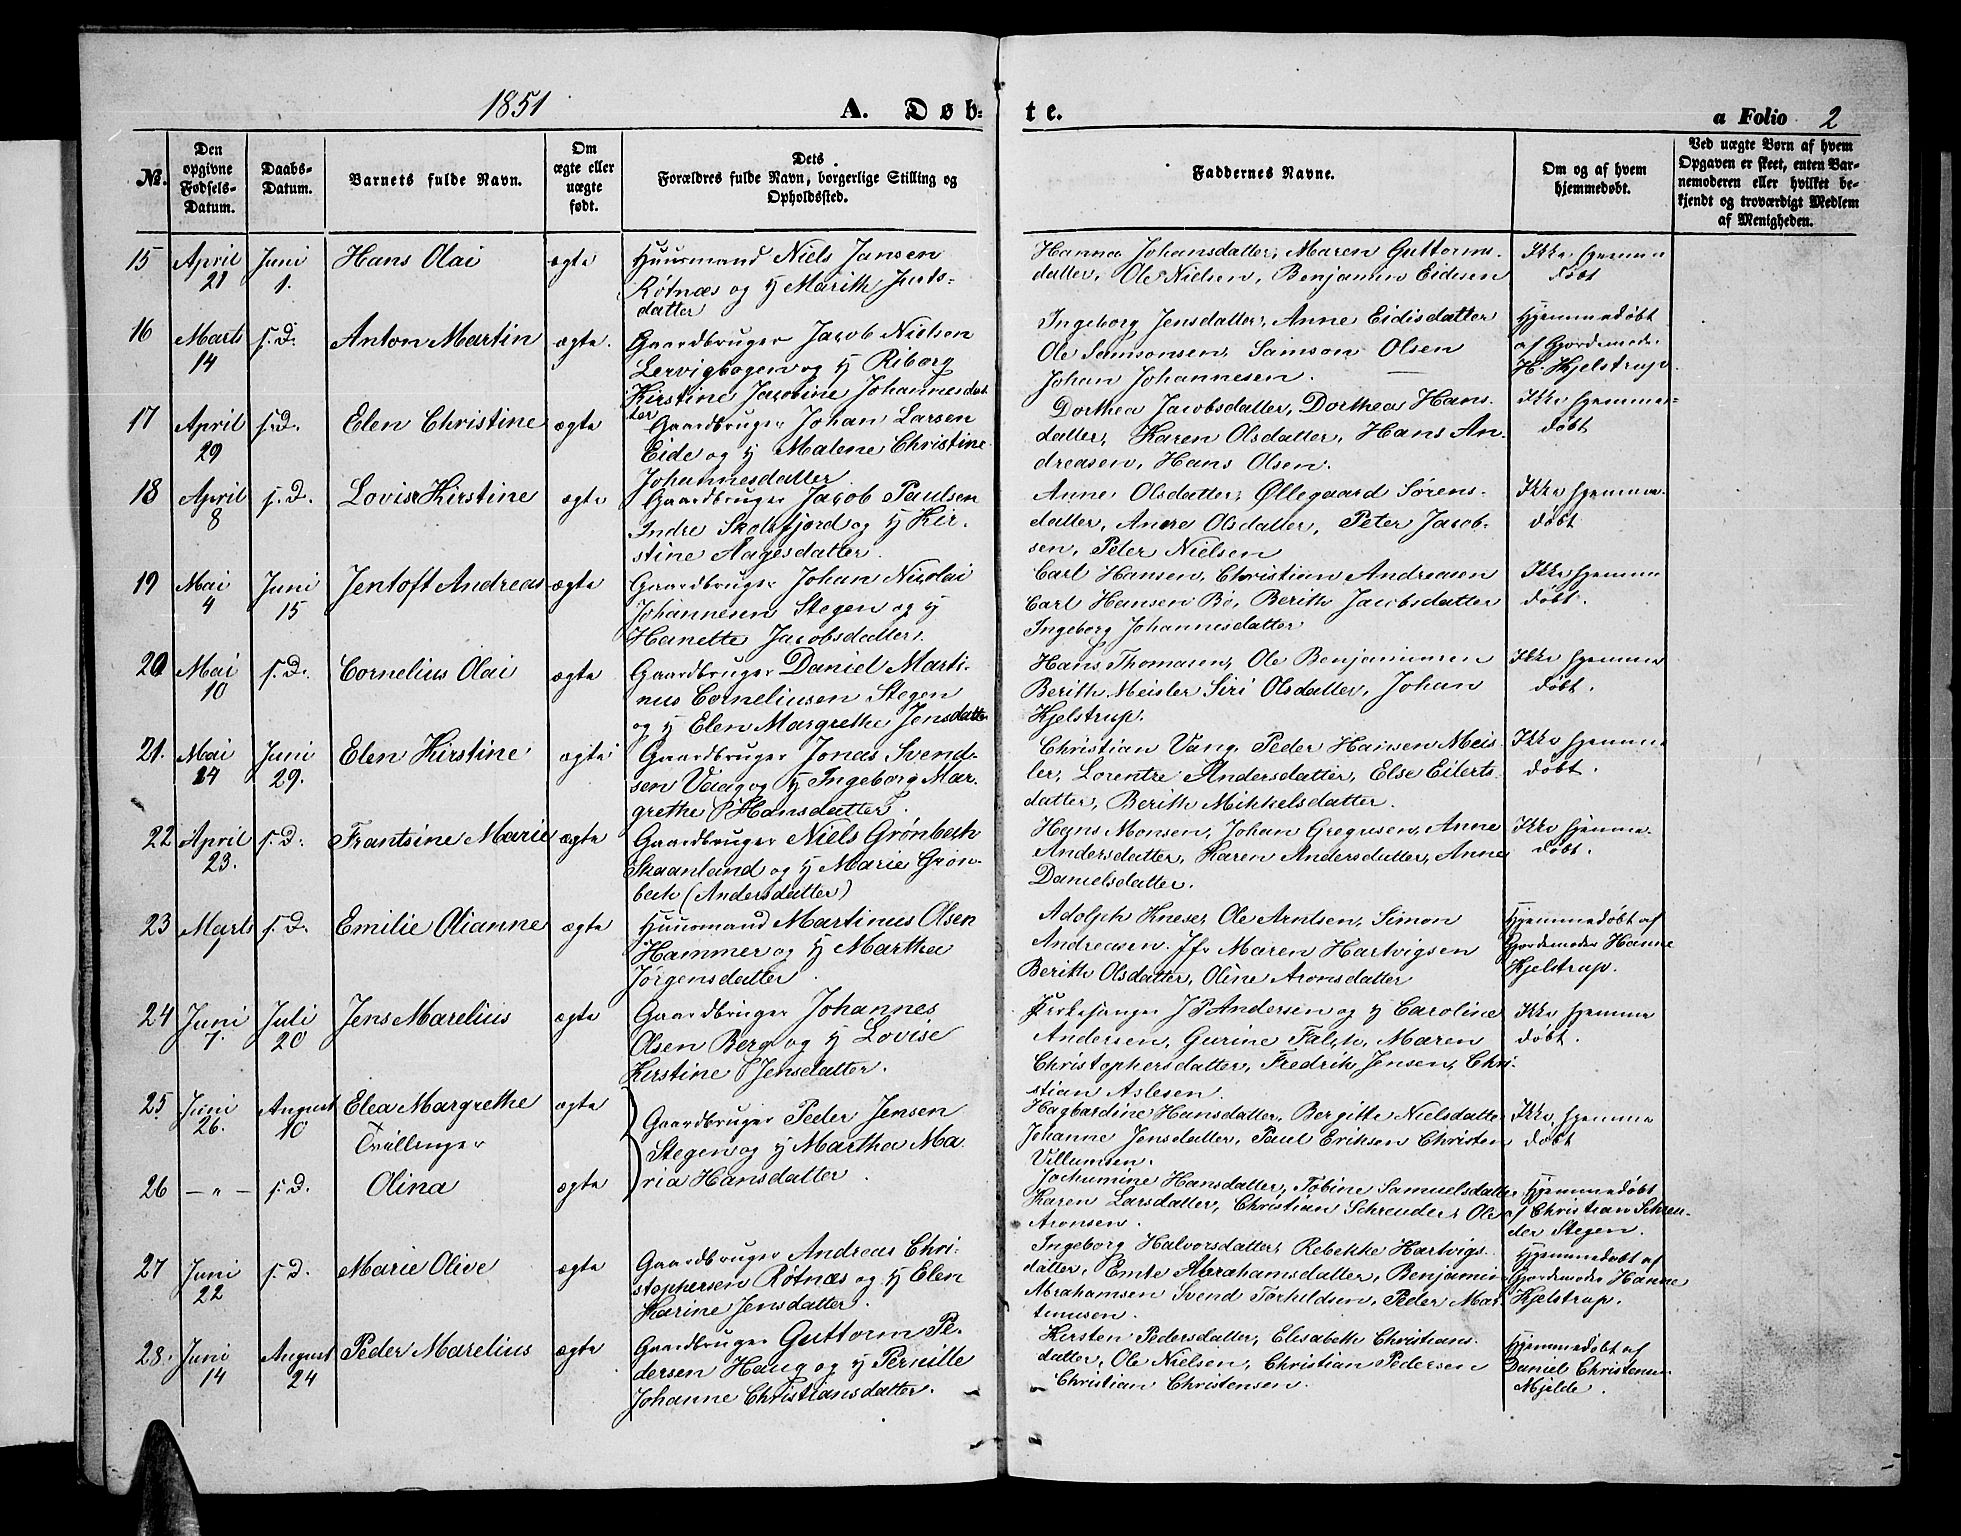 1851
A. Døb=
te.
a Folio 2
No.
Den opgivne Fødsels-Datum.
Daabs-Datum.
Barnets fulde Navn.
Om ægte eller uægte født.
Dets Forældres fulde Navn, borgerlige Stilling og Opholdssted.
Faddernes Navne.
Om og af hvem hjemmedøbt.
Ved uægte Børn af hvem Opgaven er skeet, enten Barnemoderen eller hvilket bekjendt og troværdigt Medlem af Menigheden.
15 April 21 Juni 1. Hans Olai ægte
Huusmand Niels Jansen
Røtnæs og Marith Justs-
datter
Hanna Johansdatter, Maren Guttorms-
datter, Ole Nielsen, Benjamin Eidesen
Ikke hjemme
døbt
16 Marts 14 s. D. Anton Martin ægte.
Gaardbruger Jacob Nielsen
Lervigbogen og H Riborg
Kirstine Jacobine Johannesdat-
ter
Ingeborg Jensdatter, Anne Eidisdatter
Ole Samsonsen, Samson Olsen
Johan Johannesen.
Hjemmedøbt
af Gjordemoder
H. Hjelstrup.
17 April 29 s. D. Elen Christine ægte
Gaardbruger Johan Larsen
Eide og H Malene Christine
Johannesdatter
Dorthea Jacobsdatter, Dorthea Hans-
datter, Karen Olsdatter, Hans An-
dreasen, Hans Olsen.
Ikke hjemme-
døbt
18 April 8 s. D. Lovise Kirstine ægte
Gaardbruger Jacob Paulsen
Indre Skolsfjord og H Kir-
stine Aagesdatter.
Anne Olsdatter, Øllegaard Sørens-
datter, Anne Olsdatter, Peter Jacob-
sen, Peter Nielsen
Ikke hjemme-
døbt
19 Mai 4 Juni 15 Jentoft Andreas ægte
Gaardbruger Johan Nicolai
Johannesen Stegen og H
Hanette Jacobsdatter.
Carl Hansen, Christian Andreasen
Carl Hansen Bø, Berith Jacobsdatter
Ingeborg Johannesdatter
Ikke hjemme
døbt.
20 Mai 10 s. D. Cornelius Olai ægte
Gaardbruger Daniel Marti-
nus Corneliusen Stegen
og H Elen Margrethe Jensdatter
Hans Thomasen, Ole Benjaminsen
Berith Meisler Siri Olsdatter, Johan
Hjelstrup.
Ikke hjemme
døbt.
21. Mai 24 Juni 29. Elen Kirstine ægte
Gaardbruger Jonas Svend-
sen Vaag og H Ingeborg Mar-
grethe Hansdatter.
Christian Vang, Peder Hansen Meis-
ler, Lorentze Andersdatter, Else Eilerts-
datter, Berith Mikkelsdatter.
Ikke hjemme
døbt.
22 April 23. s. D. Frantsine Marie ægte
Gaardbruger Niels Grønbech
Skaanland og H Marie Grøn-
bech (Andersdatter)
Hans Monsen, Johan Gregusen, Anne
Andersdatter, Karen Andersdatter, Anne
Danielsdatter.
Ikke hjemme-
døbt.
23 Marts 1 s. D. Emilie Olianne ægte
Huusmand Martinus Olsen
Hammer og H Martha
Jørgensdatter.
Adolph Kneser, Ole Arntsen, Simon
Andreasen. Jfr Maren Hartvigsen
Berith Olsdatter, Oline Aronsdatter
Hjemmedøbt af
Gjordemoder Hanne
Hjelstrup.
24 Juni 7. Juli 20 Jens Marelius ægte
Gaardbruger Johannes
Olsen Berg og H Lovise
Kirstine Jensdatter.
Kirkesanger J P Andersen og H Caroline
Andersen, Gurine Falch, Maren
Christophersdatter, Fredrik Jensen, Chri-
stian Aslesen.
Ikke hjemme
døbt.
25 Juni 26. August 10 Elea Margrethe ægte
Trillinger
Gaardbruger Peder Jensen
Stegen og H Martha Ma-
ria Hansdatter.
Hagbardine Hansdatter, Bergitte Nielsdatter
Johanne Jensdatter, Paul Eriksen Christen
Villumsen.
Ikke hjemme
døbt
26 — " — s. D. Olina ægte
Jochumine Hansdatter, Tobine Samuelsdatter
Karen Larsdatter, Christian Schreuder, Ole
Aronsen.
Hjemmedøbt
af Christian Schreu-
der Stegen.
27 Juni 22 s. D. Marie Olive ægte
Gaardbruger Andreas Chri-
stophersen Røtnæs og H Elen
Karine Jensdatter.
Ingeborg Halvorsdatter, Rebekke Hartvigs-
datter, Emte Abrahamsdatter, Benjamin
Abrahamsen Svend Torkildsen, Peder Mar-
tinusen.
Hjemmedøbt af
Gjordemoder Hanne
Hjelstrup.
28. Juni 14 August 24 Peder Marelius ægte
Gaardbruger Guttorm Pe-
dersen Haug og H Pernille
Johanne Christiansdatter.
Kirsten Pedersdatter, Elisabeth Christians-
datter, Ole Nielsen, Christian Pedersen
Christian Christensen.
Hjemmedøbt af
Daniel Christensen
Mjelde.